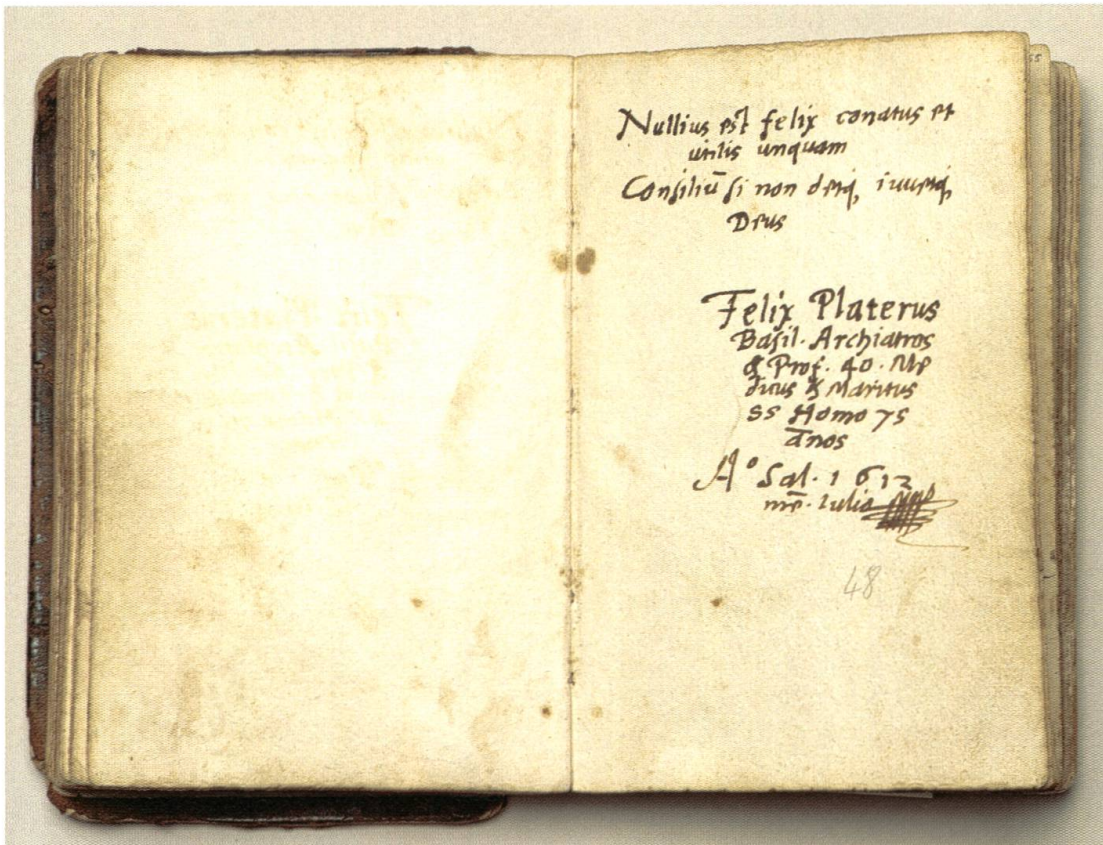 Nullius est felix conatus et
utilis unquam
Consiliū si non detq, iuuetq,
Deus
Felix Platerus
Basil. Archiatros
& Prof. 40. Me
dicus & Maritus
55 Homo 75
ānos
Aº Sal. 1612
mē. Iulio
48
55